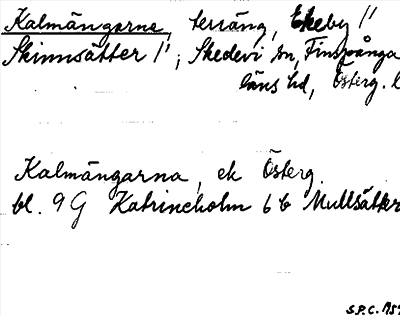 Kalmängarna, terräng, Ekeby 1/1
Skinnsätter 1/1; Skedevi sn, Finspånga
läns hd, Österg. l
Kalmängarna, ek Österg.
bl. 9 G Katrineholm 6 b Mullsätter
S.P.C. 195